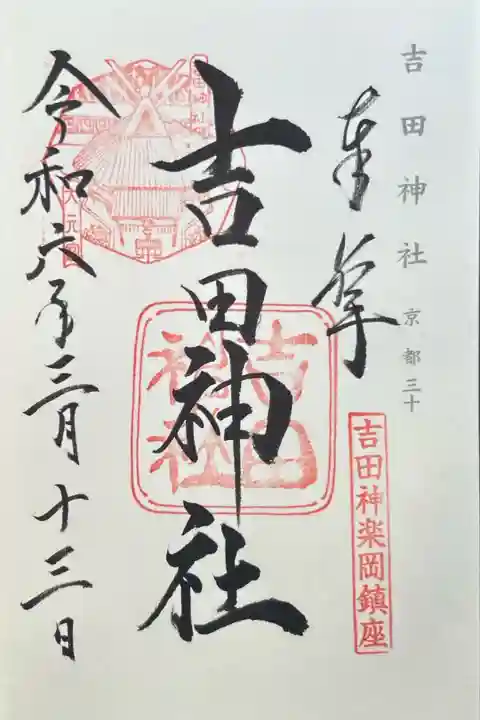 吉田神社 京都三十
奉拝
吉田神楽岡鎮座
吉田神社
吉田神社
令和六年三月十三日